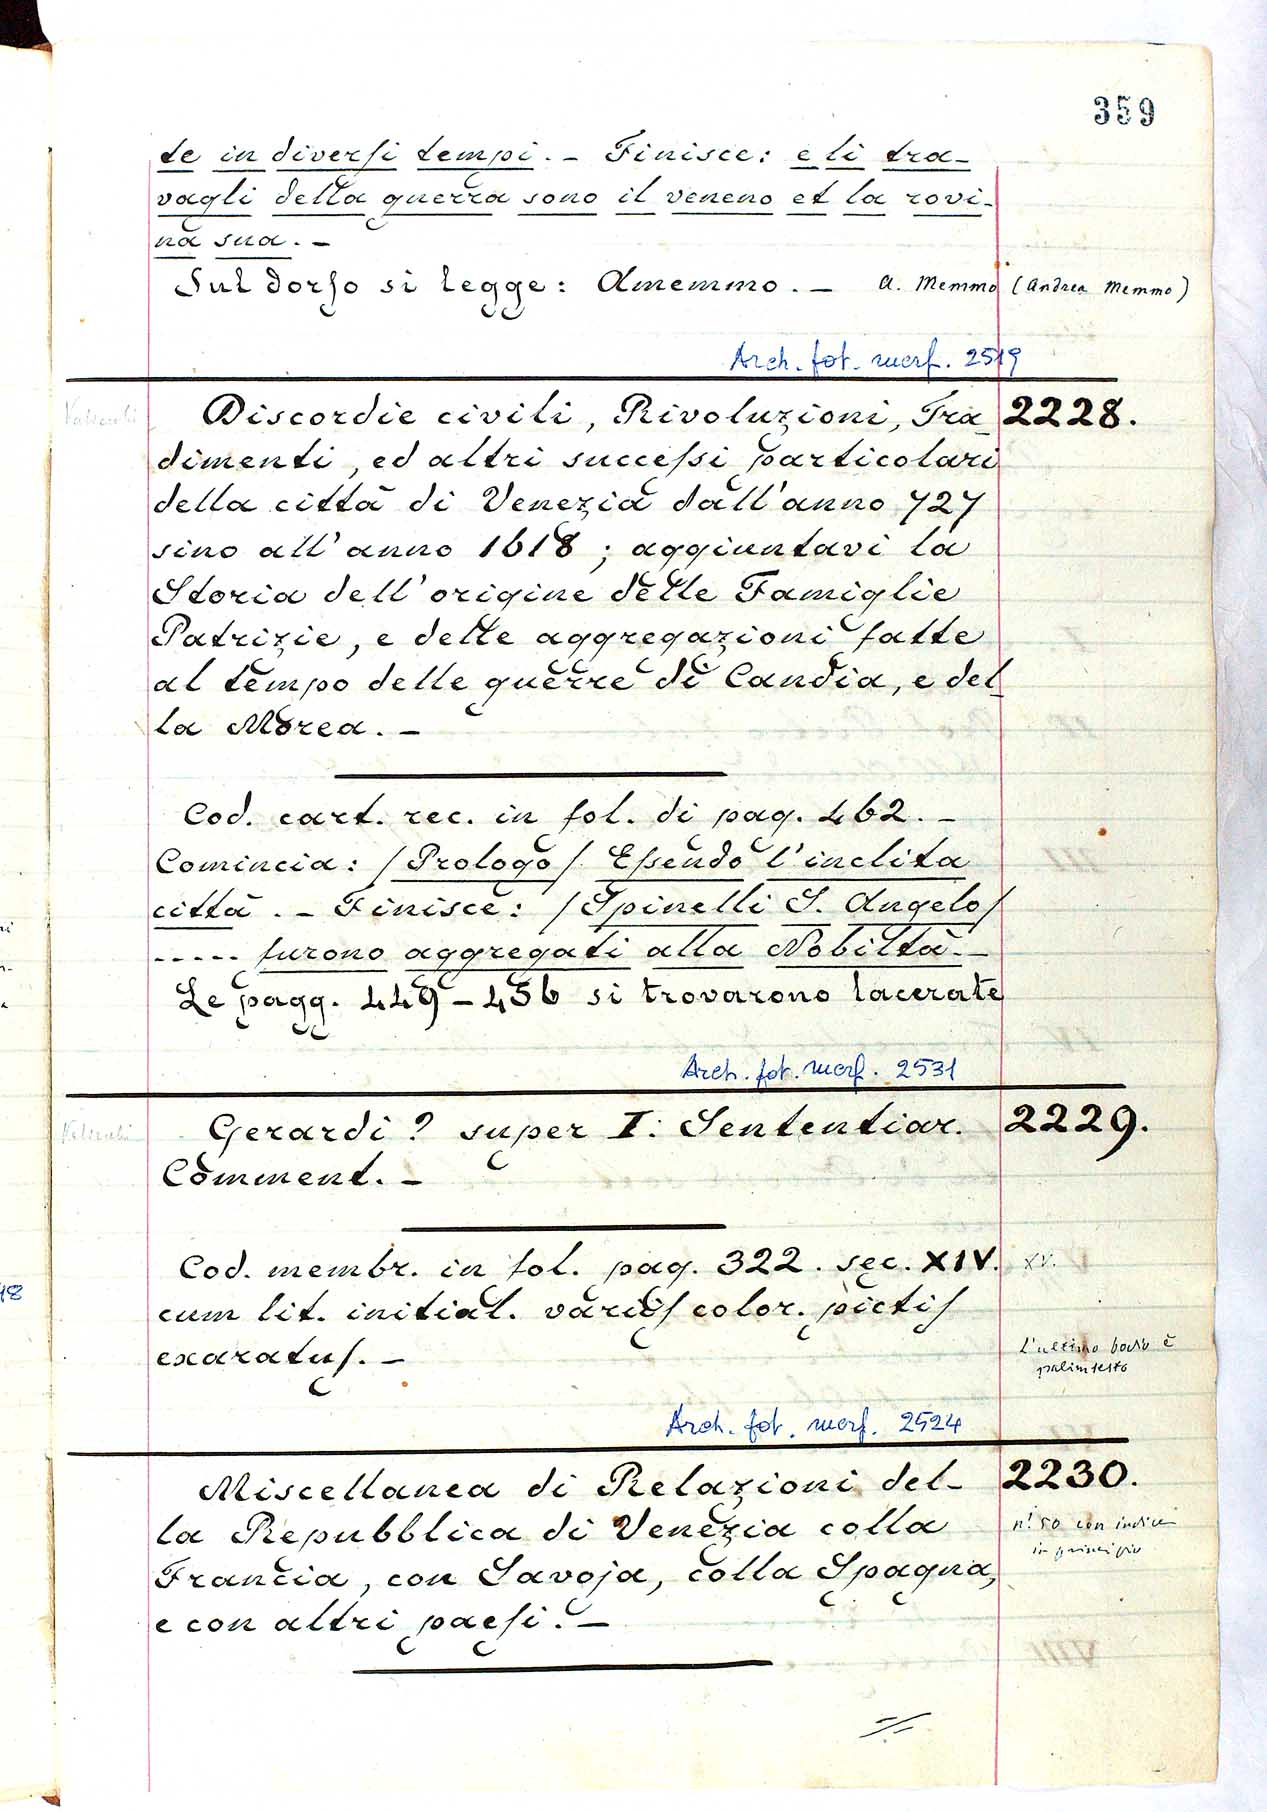 359
te in diversi tempi. - Finisce: e li tra-
vagli della guerra sono il veneno et la rovi-
na sua. -
Sul dorso si legge: Amemmo. - A. Memmo (Andrea Memmo)
Arch. fot. marf. 2519
Discordie civili, Rivoluzioni, Tra- 2228.
dimenti, ed altri successi particolari
della città di Venezia dall'anno 727
sino all'anno 1618; aggiuntavi la
Storia dell'origine delle Famiglie
Patrizie, e delle aggregazioni fatte
al tempo delle guerre di Candia, e del-
la Morea. -
Cod. cart. rec. in fol. di pag. 462. -
Comincia: /Prologo/ Essendo l'inclita
città. - Finisce: /Spinelli S. Angelo/
..... furono aggregati alla Nobiltà. -
Le pagg. 449-456 si trovarono lacerate
Arch. fot. marf. 2531
Gerardi? super I. Sententiar. 2229.
Comment. -
Cod. membr. in fol. pag. 322. sec. XIV. XV.
cum lit. initial. variis color. pictis
exaratus. -
L'ultimo è
palimsesto
Arch. fot. marf. 2524
Miscellanea di Relazioni del- 2230.
la Repubblica di Venezia colla
n.° 50 con indice
in principio
Francia, con Savoja, colla Spagna,
e con altri paesi. -